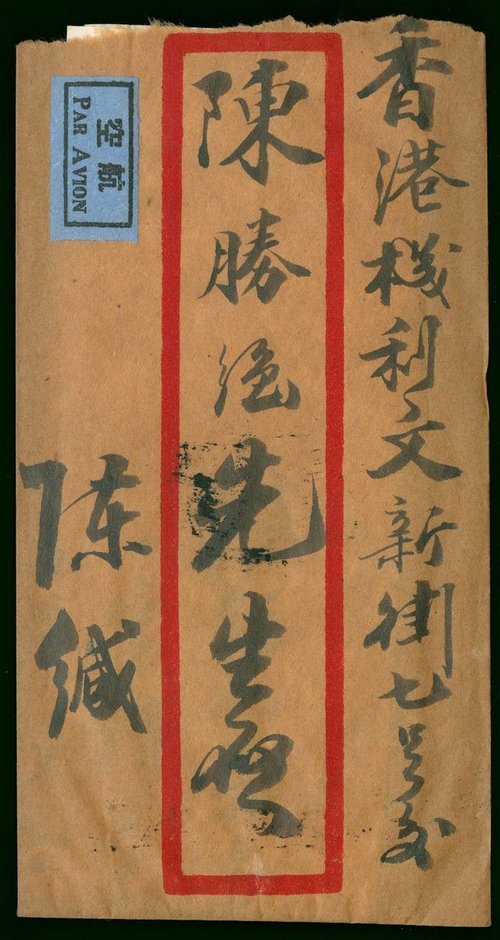 香港機利文新街七号交
陳勝強先生啓
陈缄
空航
PAR AVION